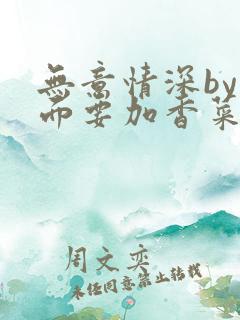 無意情深by
而要加香菜
周文奕
未经同意禁止转载